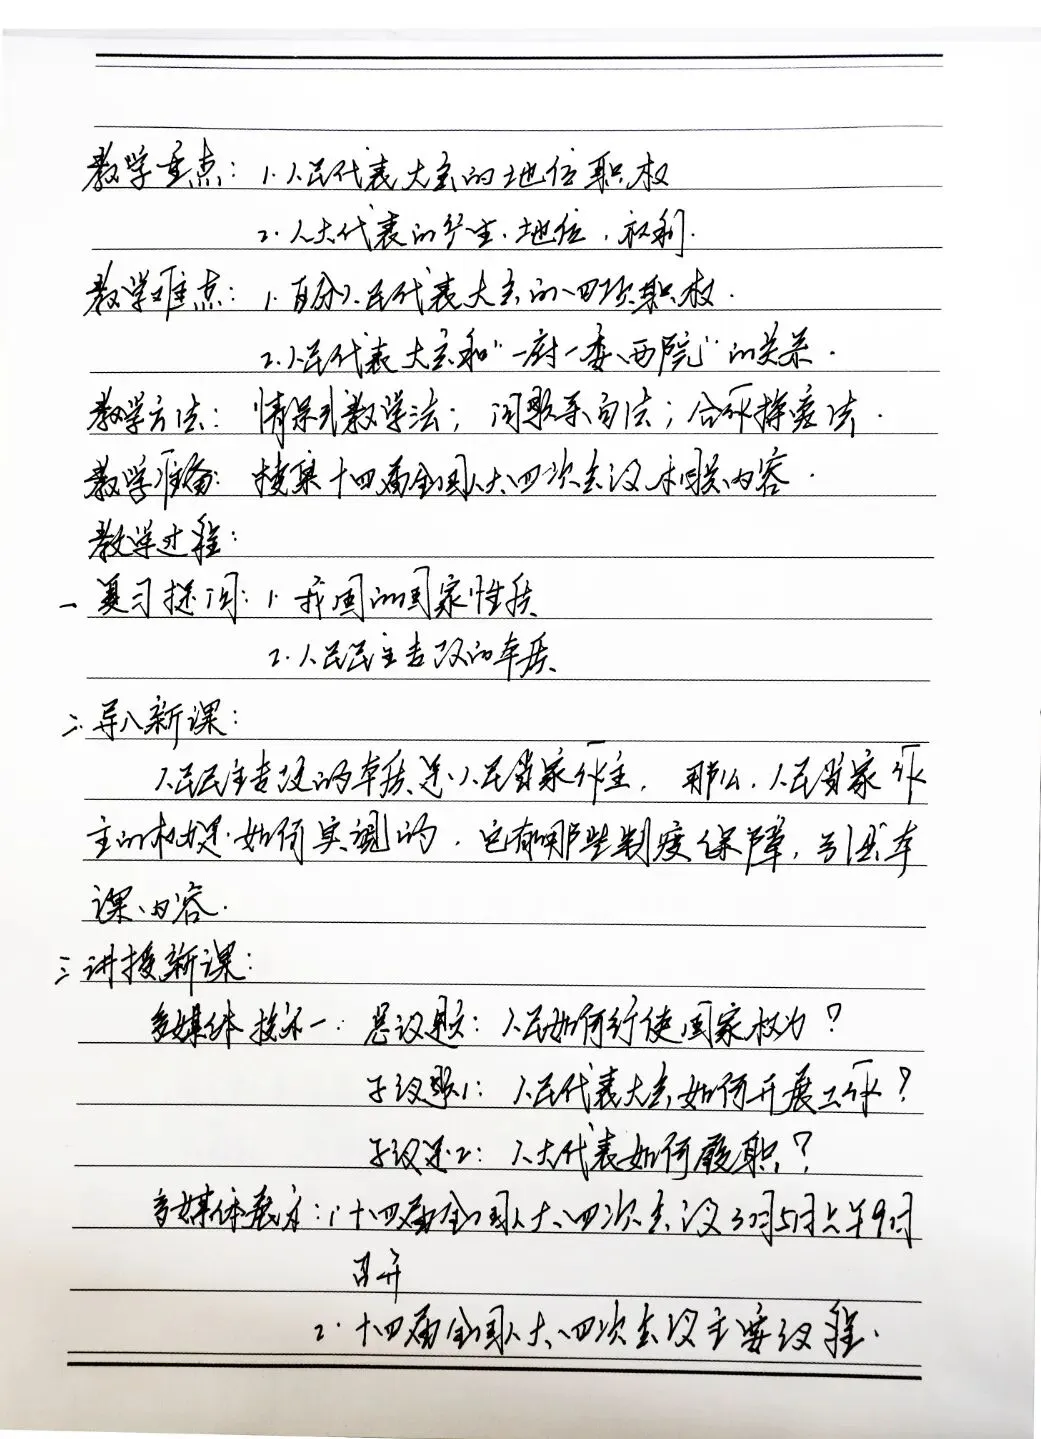 教学重点：1.人民代表大会的地位职权
2.人大代表的产生.地位.权利.
教学难点：1.区分人民代表大会的四项职权.
2.人民代表大会和"一府一委两院"的关系.
教学方法：情景式教学法；问题系列法；合作探究法.
教学准备：搜集十四届全国人大四次会议相关内容.
教学过程：
一 复习提问：1.我国的国家性质
2.人民民主专政的本质
二.导入新课：
人民民主专政的本质是人民当家作主，那么，人民当家作
主的权力是如何实现的，它有哪些制度保障，引出本
课内容.
三 讲授新课：
多媒体投示一：总议题：人民如何行使国家权力？
子议题1：人民代表大会如何开展工作？
子议题2：人大代表如何履职？
多媒体展示：1.十四届全国人大四次会议3月5日上午9时
召开
2.十四届全国人大四次会议主要议程.